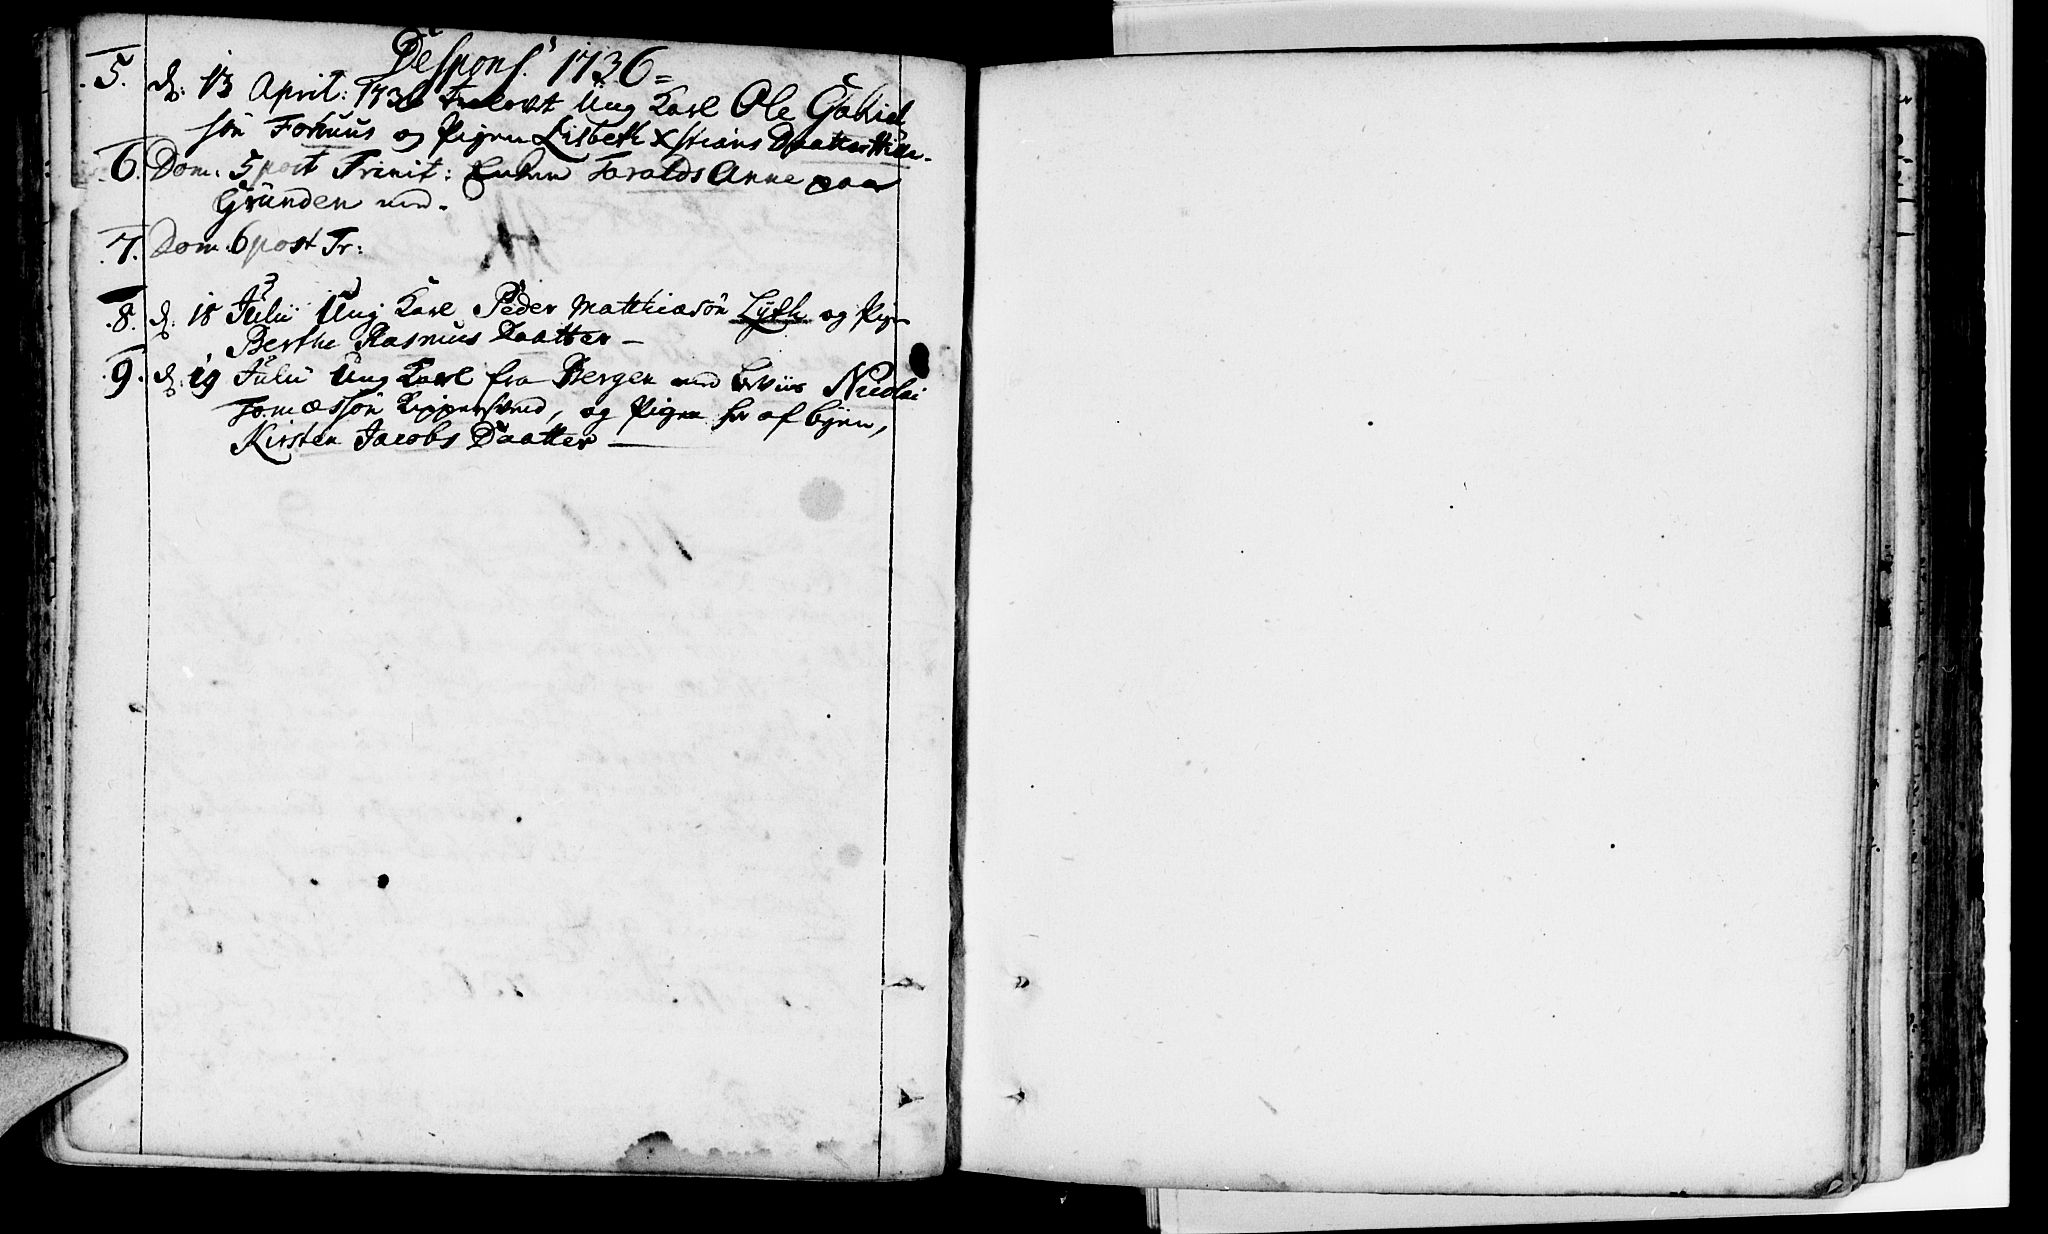 Despons. 1736
5. d: 13 April: 1736 trolovt Ung Karl Ole Gabriel
søn Forhuus og Pigen Lisbeth Xstians Daatter
6. Dom. 5 post Trinit: Enken Toralds Anne paa
Grúnden
7. Dom. 6 post Tr:
8. d: 18 Julii Ung Karl Peder Matthiæsøn Lÿth og Pigen
Berthe Rasmus Daatter —
9. d: 19 Julii Ung Karl fra Bergen Nicolai
Tomæssøn og Pigen her af byen,
Kirsten Jacobs Daatter —